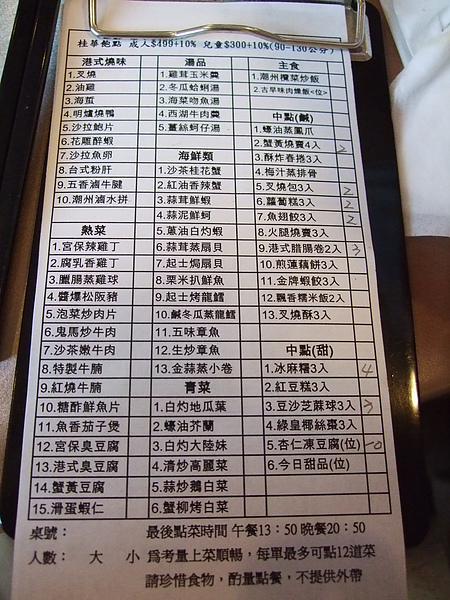 桂華飽點 成人$499+10% 兒童$300+10%(90-130公分)
港式燒味
1.叉燒
2.油雞
3.海蜇
4.明爐燒鴨
5.沙拉鮑片
6.花雕醉蝦
7.沙拉魚卵
8.台式粉肝
9.五香滷牛腱
10.潮州滷水拼
熱菜
1.宮保辣雞丁
2.腐乳香雞丁
3.臘腸蒸雞球
4.醬爆松阪豬
5.泡菜炒肉片
6.鬼馬炒牛肉
7.沙茶嫩牛肉
8.特製牛腩
9.紅燒牛腩
10.糖酢鮮魚片
11.魚香茄子煲
12.宮保臭豆腐
13.港式臭豆腐
14.蟹黃豆腐
15.滑蛋蝦仁
湯品
1.雞茸玉米羹
2.冬瓜蛤蜊湯
3.海菜吻魚湯
4.西湖牛肉羹
5.薑絲蚵仔湯
海鮮類
1.沙茶桂花蟹
2.紅油香辣蟹
3.蒜茸鮮蝦
4.蒜泥鮮蚵
5.蔥油白灼蝦
6.蒜茸蒸扇貝
7.起士焗扇貝
8.粟米扒鮮魚
9.起士烤龍鱈
10.鹹冬瓜蒸龍鱈
11.五味章魚
12.生炒章魚
13.金蒜蒸小卷
青菜
1.白灼地瓜葉
2.蠔油芥蘭
3.白灼大陸妹
4.清炒高麗菜
5.蒜炒鵝白菜
6.蟹柳烤白菜
主食
1.潮州欖菜炒飯
2.古早味肉燥飯<位>
中點(鹹)
1.蠔油蒸鳳爪
2.蟹黃燒賣4入 2
3.酥炸春捲3入
4.梅汁蒸排骨
5.叉燒包3入 2
6.蘿蔔糕3入 2
7.魚翅餃3入 2
8.火腿燒賣3入
9.港式腊腸卷2入 3
10.煎蓮藕餅3入
11.金牌蝦餃3入
12.飄香糯米飯2入
13.叉燒酥3入
中點(甜)
1.冰麻糬3入 4
2.紅豆糕3入
3.豆沙芝蔴球3入 3
4.綠皇椰絲棗3入
5.杏仁凍豆腐(位) 10
6.今日甜品(位)
桌號：
最後點菜時間 午餐13：50 晚餐20：50
人數： 大 小 爲考量上菜順暢，每單最多可點12道菜
請珍惜食物，酌量點餐，不提供外帶